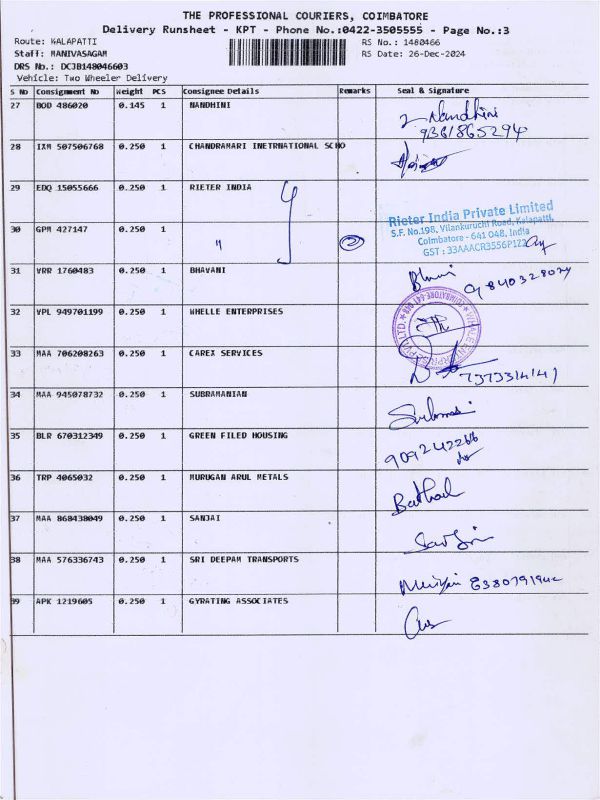 THE PROFESSIONAL COURIERS, COIMBATORE
Delivery Runsheet - KPT - Phone No.:0422-3505555 - Page No.:3
Route: KALAPATTI
RS No.: 1480466
Staff: MANIVASAGAM
RS Date: 26-Dec-2024
DRS No.: DCJB148046603
Vehicle: Two Wheeler Delivery
S No Consignment No Weight PCS Consignee Details Remarks Seal & Signature
27 BOD 486020 0.145 1 NANDHINI Nandhini
9361865294
28 IXM 507506768 0.250 1 CHANDRAMARI INETRNATIONAL SCHO
29 EDQ 15055666 0.250 1 RIETER INDIA
Rieter India Private Limited
S.F. No.198, Vilankuruchi Road, Kalapatti,
Coimbatore - 641 048, India
GST : 33AAACR3556P1Z2
30 GPM 427147 0.250 1 " 2
31 VRR 1760483 0.250 1 BHAVANI
32 VPL 949701199 0.250 1 WHELLE ENTERPRISES
33 MAA 706208263 0.250 1 CAREX SERVICES 7373314141
34 MAA 945078732 0.250 1 SUBRAMANIAN
35 BLR 670312349 0.250 1 GREEN FILED HOUSING 9092422266
36 TRP 4065032 0.250 1 MURUGAN ARUL METALS
37 MAA 868438049 0.250 1 SANJAI
38 MAA 576336743 0.250 1 SRI DEEPAM TRANSPORTS
39 APK 1219605 0.250 1 GYRATING ASSOCIATES